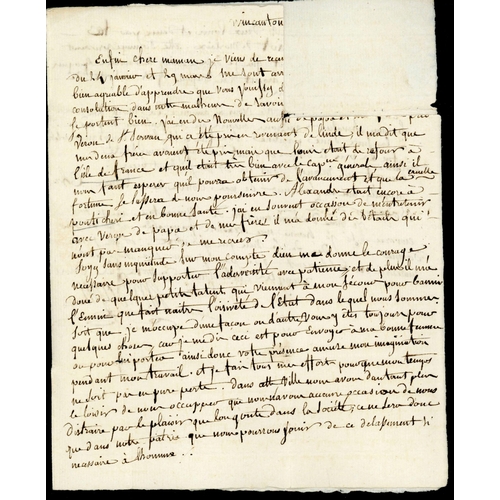 Wincanton
Enfin chere maman je vien de rece
du 24 janvier et 29 mars me sont arr
bien agréable d'apprendre que vous jouissez d
consolation dans notre malheure de savoir
se portent bien. j'ai eu des Nouvelle aussi de papa
Veron de St Servan qui a été pris en revenant de linde; il ma dit que
mes deux frère avaient été pris mais que louis était de retour à
l'ile de france et quil était très bien avec le capne général ainsi il
nous faut esperer quil pourra obtenir de l'avancement et que la cruelle
fortune se lassera de nous poursuivre. Alexandre était encore à
pontichery et en bonne santé. j'ai eu souvent occasion de mentretenir
avec Veron de papa et de mes frère; il ma donné des détails qui
nont pas manqué de me
Soyez sans inquiétude sur mon compte, dieu me donne le courage
necessaire pour supporter l'adversité avec patience, et de plus il m'a
doué de quelques petits talent qui viennent à mon secour pour bannir
l'Ennui que fait naitre l'oisiveté de l'Etat dans lequel nous sommes
Soit que je m'occupe d'une façon ou d'autre Vous y êtes toujours pour
quelques chose, car je me dis ceci est pour envoyer à ma bonne femme
ou pour lui porter ainsi donc votre présence amuse mon imagination
pendant mon travail. et je fais tous mes effort pour que mon temps
ne soit pas en pure perte. dans cette Ville nous avons d'autant plus
le loisir de nous occupper que nous n'avons aucune occasion de nous
distraire par le plaisir que l'on goute dans la Société; ce ne sera donc
que dans notre patrie que nous pourrons jouir de ce delassement si
necessaire à lhomme...